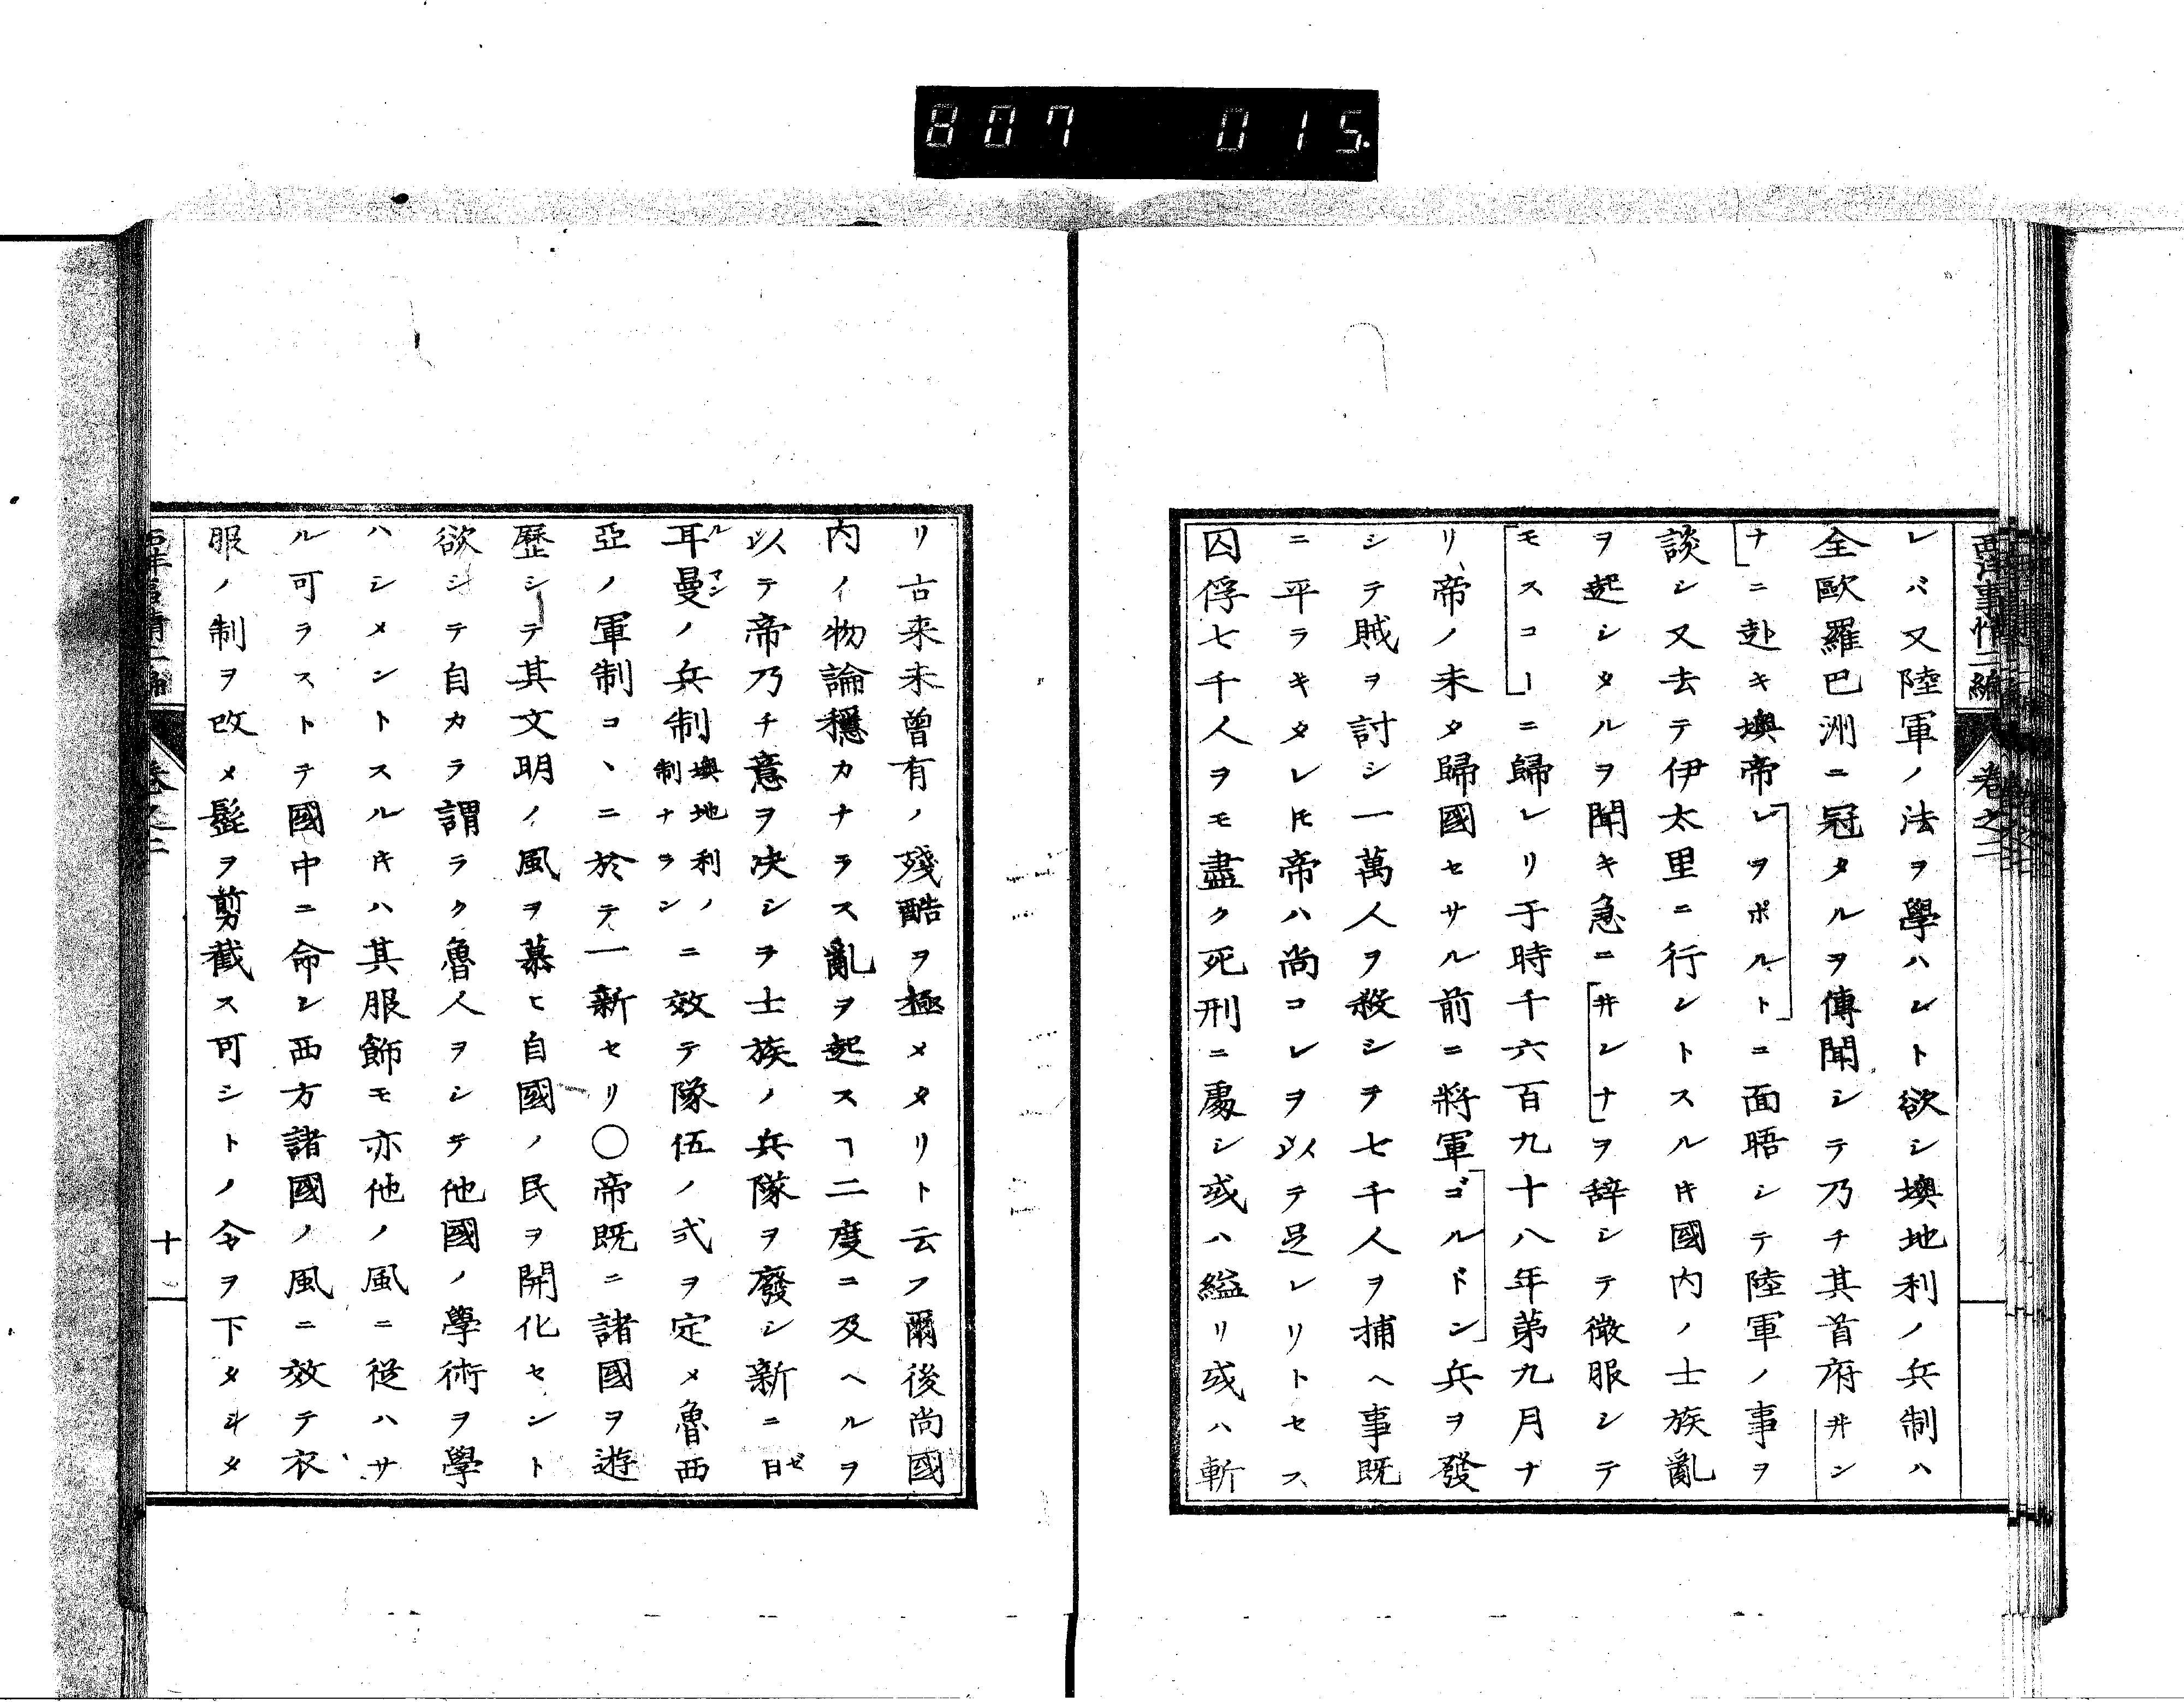 807 015
西洋事情二編 卷之二
レバ又陸軍ノ法ヲ學ハント欲シ墺地利ノ兵制ハ
全歐羅巴洲ニ冠タルヲ傳聞シテ乃チ其首府井ン
ナニ赴キ墺帝レヲポルトニ面晤シテ陸軍ノ事ヲ
談シ又去テ伊太里ニ行ントスル𪜈國内ノ士族亂
ヲ起シタルヲ聞キ急ニ井ンナヲ辞シテ微服シテ
モスコーニ歸レリ于時千六百九十八年第九月ナ
リ、帝ノ未タ歸國セサル前ニ將軍ゴルドン兵ヲ發
シテ賊ヲ討シ一萬人ヲ殺シテ七千人ヲ捕ヘ事既
ニ平ラキタレ𪜈帝ハ尚コレヲ以テ足レリトセス
囚俘七千人ヲモ盡ク死刑ニ處シ或ハ縊リ或ハ斬
リ古来未曾有ノ殘酷ヲ極メタリト云フ爾後尚國
内ノ物論穩カナラス亂ヲ起スヿ二度ニ及ヘルヲ
以テ帝乃チ意ヲ决シテ士族ノ兵隊ヲ廢シ新ニ日ゼ
耳ル曼マンノ兵制墺地利ノ制ナランニ效テ隊伍ノ式ヲ定メ魯西
亞ノ軍制コヽニ於テ一新セリ〇帝既ニ諸國ヲ遊
歷シテ其文明ノ風ヲ慕ヒ自國ノ民ヲ開化セント
欲シテ自カラ謂ラク魯人ヲシテ他國ノ學術ヲ學
ハシメントスル𪜈ハ其服飾モ亦他ノ風ニ從ハサ
ル可ラストテ國中ニ命シ西方諸國ノ風ニ效テ衣
服ノ制ヲ改メ髭ヲ剪截ス可シトノ令ヲ下タシタ
西洋事情二編 卷之二 十